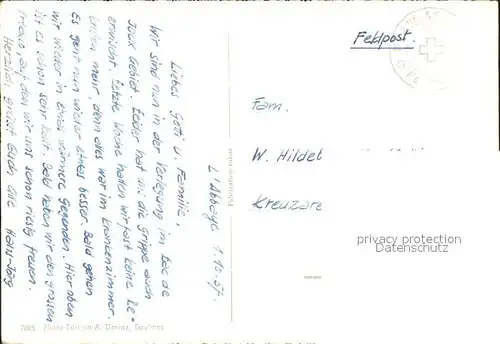 L'Abbaye 1.10.67.
Liebes Goti u. Familie,
Wir sind nun in der Verlegung im Lac de
Joux Gebiet. Leider hat mir die Grippe auch
erwischt. Letzte Woche hatten wir fast keine Re-
kruten mehr, denn alles war im Krankenzimmer.
Es geht nun wieder etwas besser. Bald gehen
wir wieder in etwas wärmere Gegenden. Hier oben
ist es schon sehr kalt. Bald haben wir den grossen
auf den wir uns schon riesig freuen.
Herzlich grüsst Euch alle Hans-Jörg
7005 Photo-Edition A. Deriaz, Baulmes
Feldpost.
Fam.
W. Hildeb
Kreuzare
privacy protection
Datenschutz